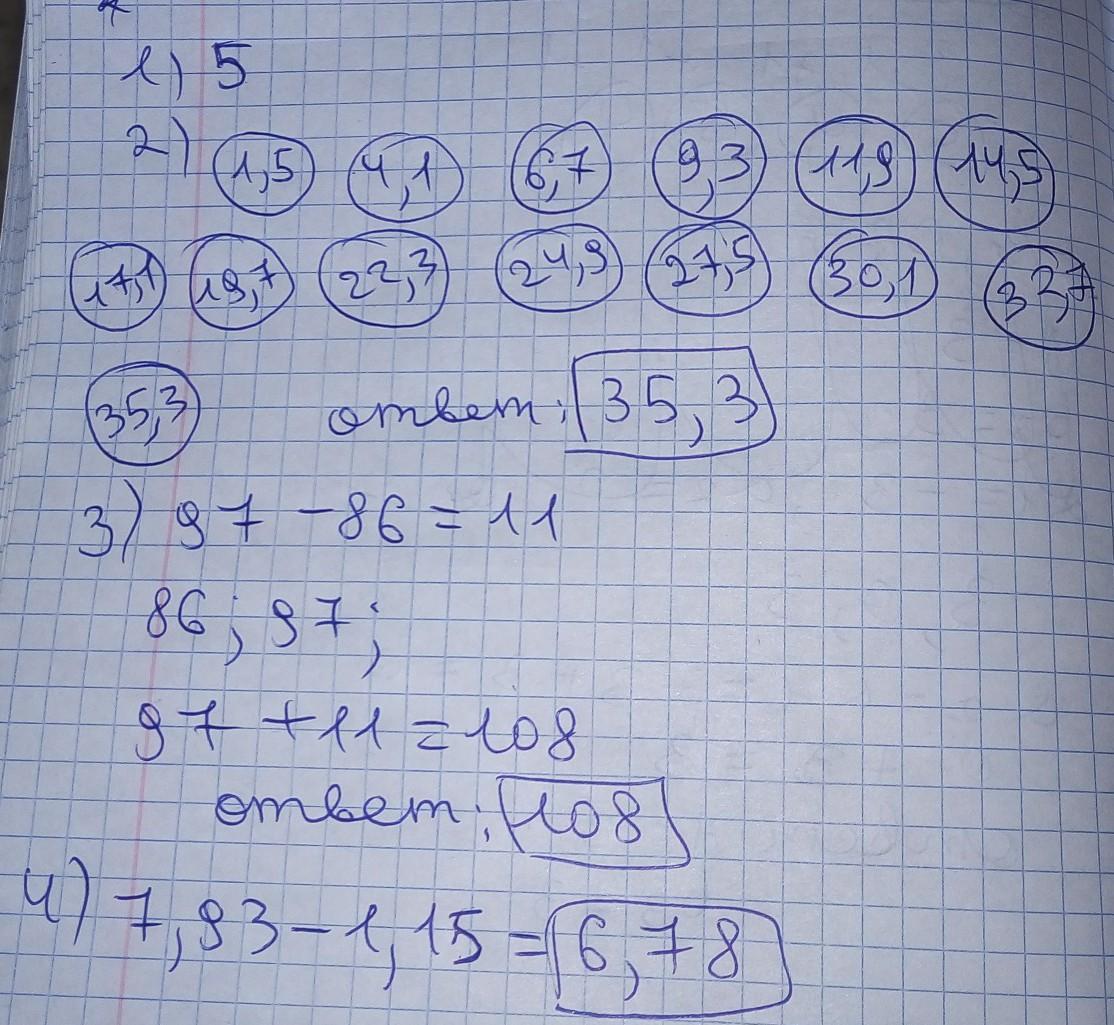 1) 5
2) 1,5 4,1 6,7 9,3 11,9 14,5
17,1 19,7 22,3 24,9 27,5 30,1 32,7
35,3 ответ: 35,3
3) 97 - 86 = 11
86; 97;
97 + 11 = 108
ответ: 108
4) 7,93 - 1,15 = 6,78